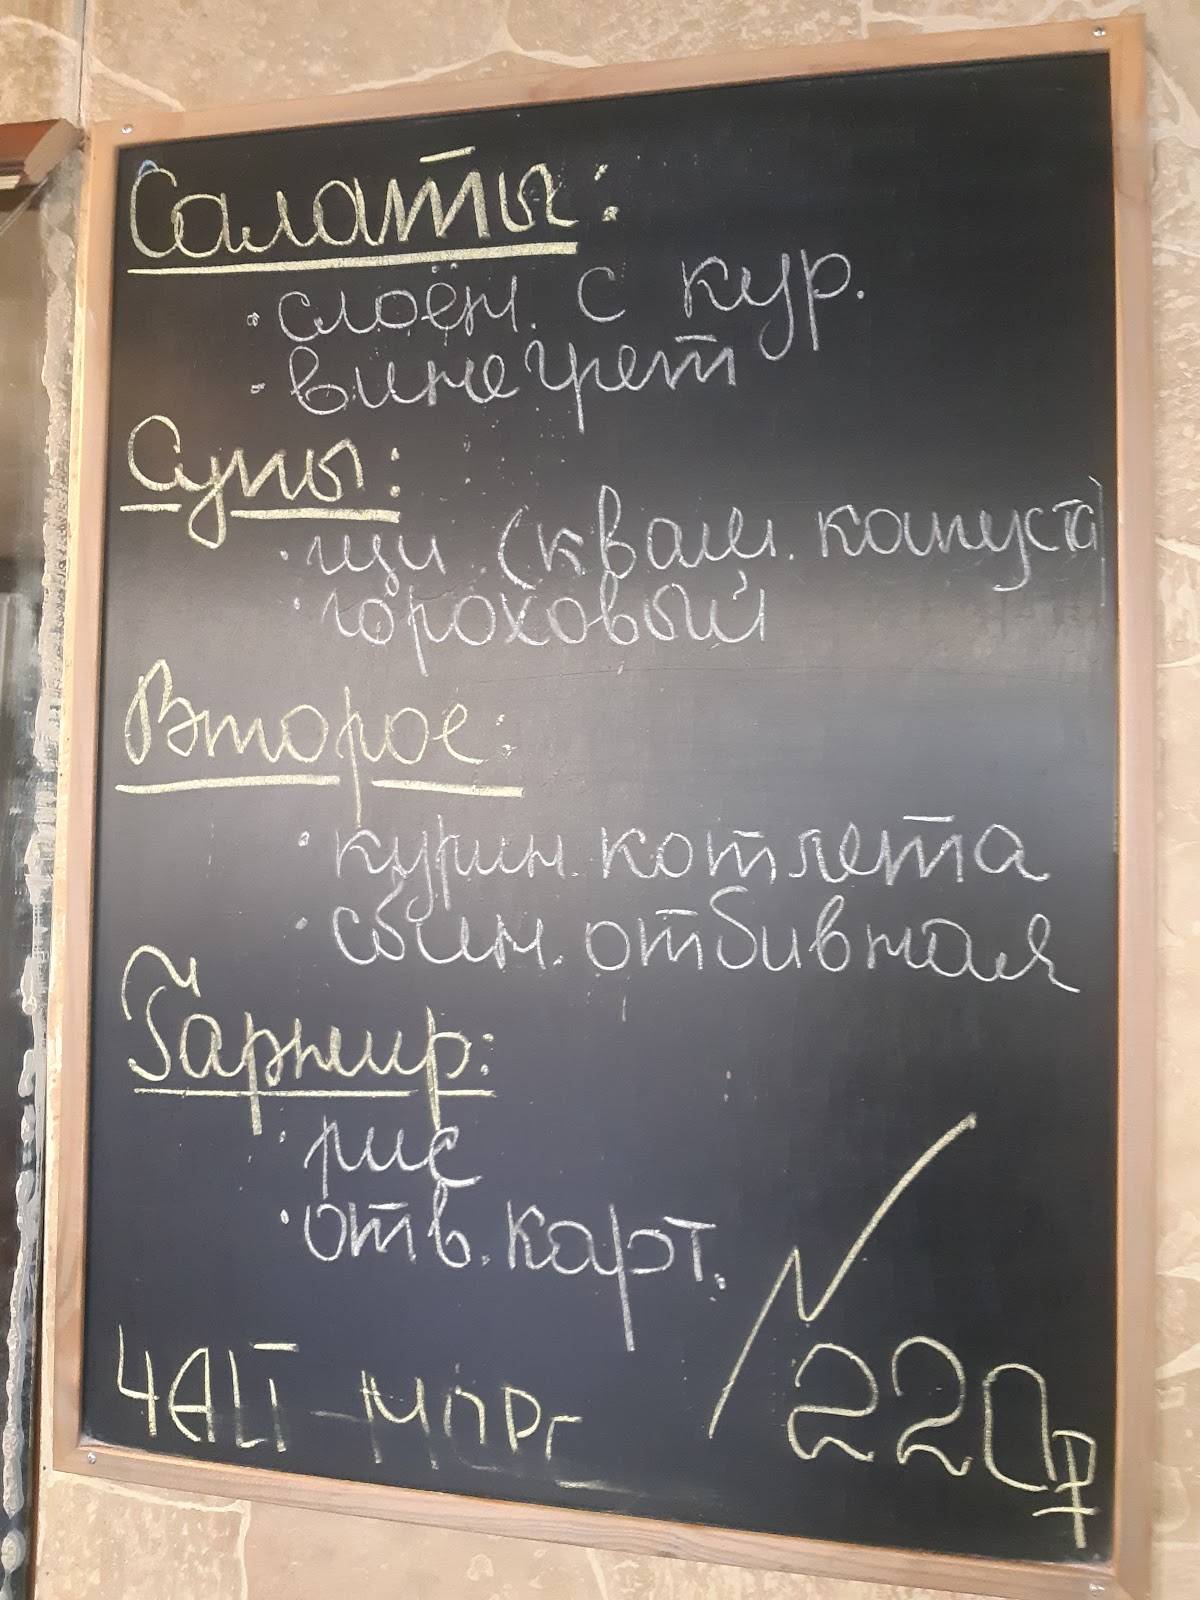 Салаты:
· слоён. с кур.
· винегрет
Супы:
· щи (квaш. капуста)
· гороховый
Второе:
· курин. котлета
· свин. отбивная
Гарнир:
· рис
· отв. карт.
220₽